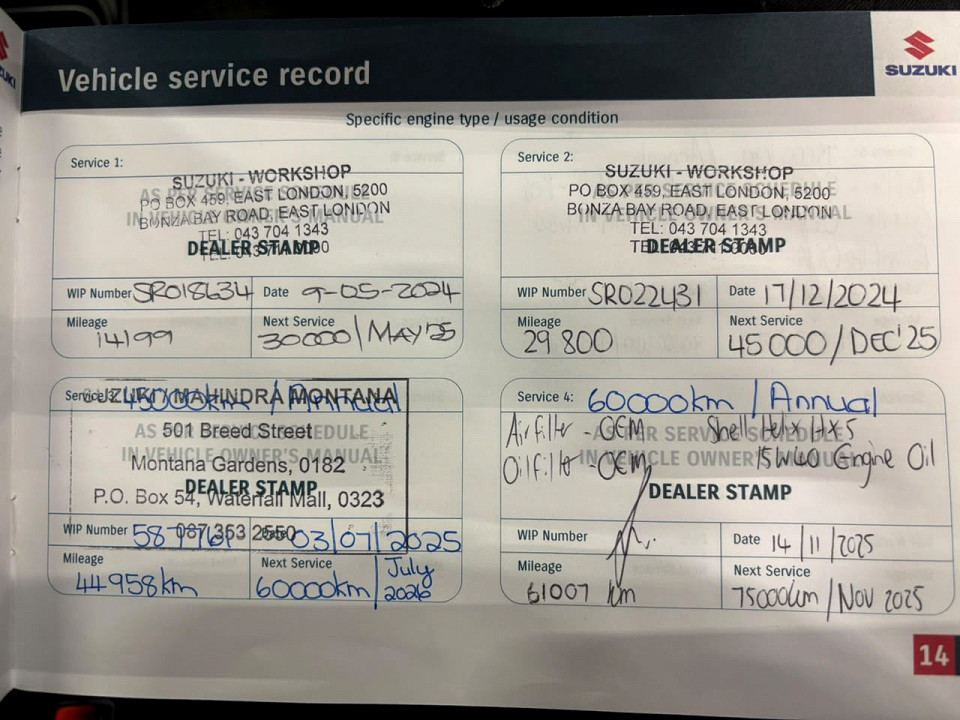 SUZUKI
Vehicle service record
Specific engine type / usage condition
Service 1:
SUZUKI - WORKSHOP
AS PER SERVICE SCHEDULE
PO BOX 459, EAST LONDON, 5200
IN VEHICLE OWNER'S MANUAL
BONZA BAY ROAD, EAST LONDON
TEL: 043 704 1343
DEALER STAMP
WIP Number SR018634 Date 9-05-2024
Mileage Next Service
14199 30000/MAY'25
Service 2:
SUZUKI - WORKSHOP
AS PER SERVICE SCHEDULE
PO BOX 459, EAST LONDON, 5200
IN VEHICLE OWNER'S MANUAL
BONZA BAY ROAD, EAST LONDON
TEL: 043 704 1343
DEALER STAMP
WIP Number SR022431 Date 17/12/2024
Mileage Next Service
29 800 45 000/DEC'25
Service 3: 45000km / Annual
SUZUKI / MAHINDRA MONTANA
501 Breed Street
AS PER SERVICE SCHEDULE
IN VEHICLE OWNER'S MANUAL
Montana Gardens, 0182
DEALER STAMP
P.O. Box 54, Waterfall Mall, 0323
087 353 2550
WIP Number 587761 Date 03/07/2025
Mileage Next Service
44958km 60000km / July 2026
Service 4: 60000km / Annual
Airfilter - OEM Shell Helix HX5
AS PER SERVICE SCHEDULE
Oilfilter - OEM 15W40 Engine Oil
IN VEHICLE OWNER'S MANUAL
DEALER STAMP
WIP Number Date 14/11/2025
Mileage Next Service
61007 km 75000km / Nov 2025
14